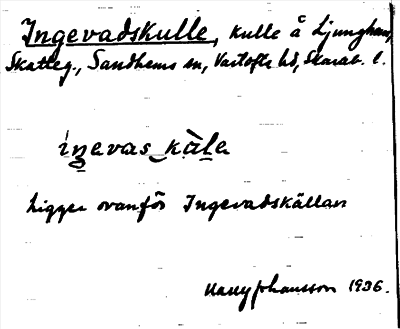 Ingevadskulle, kulle å Ljunghem,
Skatteg., Sandhems sn, Vartofta hd, Skarab. l.
iŋevas kàle
Ligger ovanför Ingevadskällan
Harry Johansson 1936.